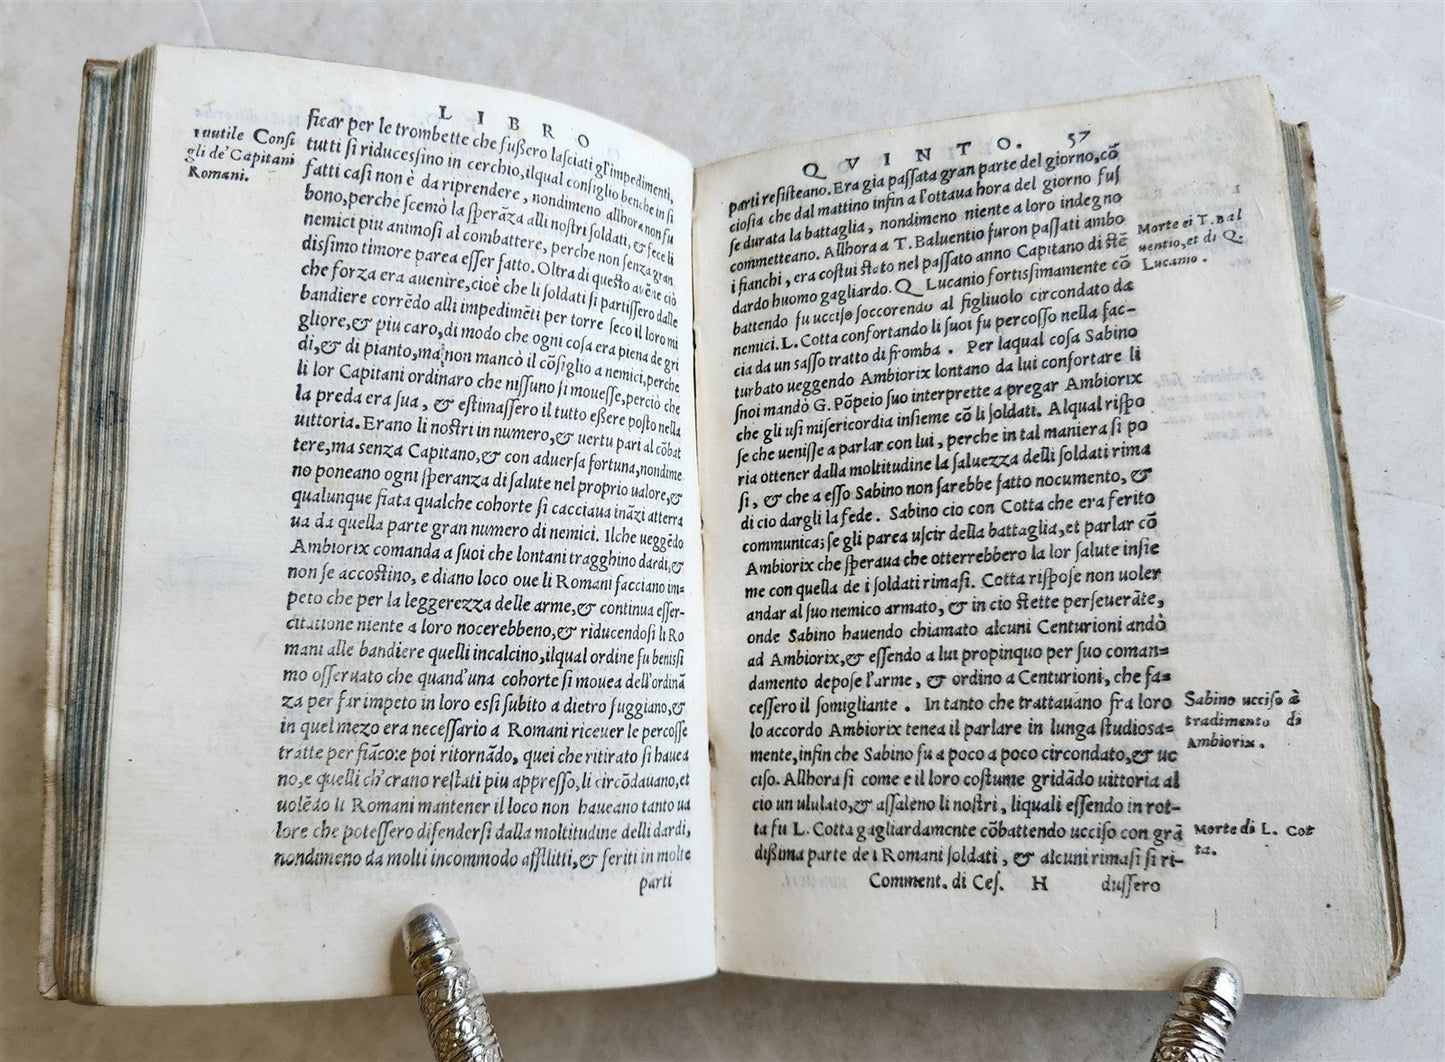 LIBRO
Inutile Consi
gli de' Capitani
Romani.
ficar per le trombette che fußero laſciati gl'impedimenti,
tutti ſi riduceſſino in cerchio, ilqual conſiglio benche in ſi
fatti caſi non è da riprendere, nondimeno allhora non fu
bono, perche ſcemò la ſperãza alli noſtri ſoldati, & fece li
nemici piu animoſi al combattere, perche non ſenza gran
diſſimo timore parea eſſer fatto. Oltra di queſto avẽne ciò
che forza era avenire, cioè che li ſoldati ſi partiſſero dalle
bandiere corrẽdo alli impedimẽti per torre ſeco il loro mi
gliore, & piu caro, di modo che ogni coſa era piena de gri
di, & di pianto, ma non mancò il cõſiglio a nemici, perche
li lor Capitani ordinaro che niſſuno ſi moueſſe, perciò che
la preda era ſua, & eſtimaſſero il tutto eßere poſto nella
uittoria. Erano li noſtri in numero, & uertu pari al cõbat
tere, ma senza Capitano, & con aduerſa fortuna, nondime
no poneano ogni ſperanza di ſalute nel proprio ualore, &
qualunque fiata qualche cohorte ſi cacciaua inãzi atterra
ua da quella parte gran numero di nemici. Ilche ueggẽdo
Ambiorix comanda a ſuoi che lontani tragghino dardi, &
non ſe accoſtino, e diano loco oue li Romani facciano im=
peto che per la leggerezza delle arme, & continua eſſer-
citatione niente a loro nocerebbeno, & riducendoſi li Ro
mani alle bandiere quelli incalcino, ilqual ordine fu beniſſi
mo oſſeruato che quand'una cohorte ſi mouea dell'ordinã
za per far impeto in loro eſſi ſubito a dietro fuggiano, &
in quel mezo era neceſſario a Romani riceuer le percoſſe
tratte per fiãco: e poi ritornãdo, quei che ritirato ſi hauea
no, e quelli ch'erano reſtati piu appreſſo, li circõdauano, et
uolẽdo li Romani mantener il loco non haueano tanto ua
lore che poteſſero difenderſi dalla moltitudine delli dardi,
nondimeno da molti incommodo afflitti, & feriti in molte
parti
QVINTO. 57
parti reſiſteano. Era gia paſſata gran parte del giorno, cõ
cioſia che dal mattino infin a l'ottaua hora del giorno fuſ
ſe durata la battaglia, nondimeno niente a loro indegno
commetteano. Allhora a T. Baluentio furon paſſati ambo
i fianchi, era coſtui ſtato nel paſſato anno Capitano di ſtẽ
dardo huomo gagliardo. Q Lucanio fortiſſimamente cõ
battendo fu ucciſo ſoccorendo al figliuolo circondato da
nemici. L. Cotta confortando li ſuoi fu percoſſo nella fac-
cia da un ſaſſo tratto di fromba. Per laqual coſa Sabino
turbato ueggendo Ambiorix lontano da lui confortare li
ſuoi mandò G. Põpeio ſuo interprette a pregar Ambiorix
che gli uſi miſericordia inſieme cõ li ſoldati. Alqual riſpo
ſe che ueniſſe a parlar con lui, perche in tal maniera ſi po
ria ottener dalla moltitudine la ſaluezza delli ſoldati rima
ſi, & che a eſſo Sabino non ſarebbe fatto nocumento, &
di cio dargli la fede. Sabino cio con Cotta che era ferito
communica; ſe gli parea uſcir della battaglia, et parlar cõ
Ambiorix che ſperaua che otterrebbero la lor ſalute inſie
me con quella de i ſoldati rimaſi. Cotta riſpoſe non uoler
andar al ſuo nemico armato, & in cio ſtette perſeuerãte,
onde Sabino hauendo chiamato alcuni Centurioni andò
ad Ambiorix, & eſſendo a lui propinquo per ſuo coman=
damento depoſe l'arme, & ordino a Centurioni, che fa=
ceſſero il ſomigliante. In tanto che trattauano fra loro
lo accordo Ambiorix tenea il parlare in lunga ſtudioſa=
mente, infin che Sabino fu a poco a poco circondato, & uc
ciſo. Allhora ſi come e il loro coſtume gridãdo uittoria al
cio un ululato, & aſſaleno li noſtri, liquali eſſendo in rot-
ta fu L. Cotta gagliardamente cõbattendo ucciſo con grã
dißima parte de i Romani ſoldati, & alcuni rimaſi ſi ri-
Comment. di Ceſ. H duſſero
Morte ei T. Bal
uentio, et di Q.
Lucanio.
Sabino ucciſo à
tradimento di
Ambiorix.
Morte di L. Cot
ta.